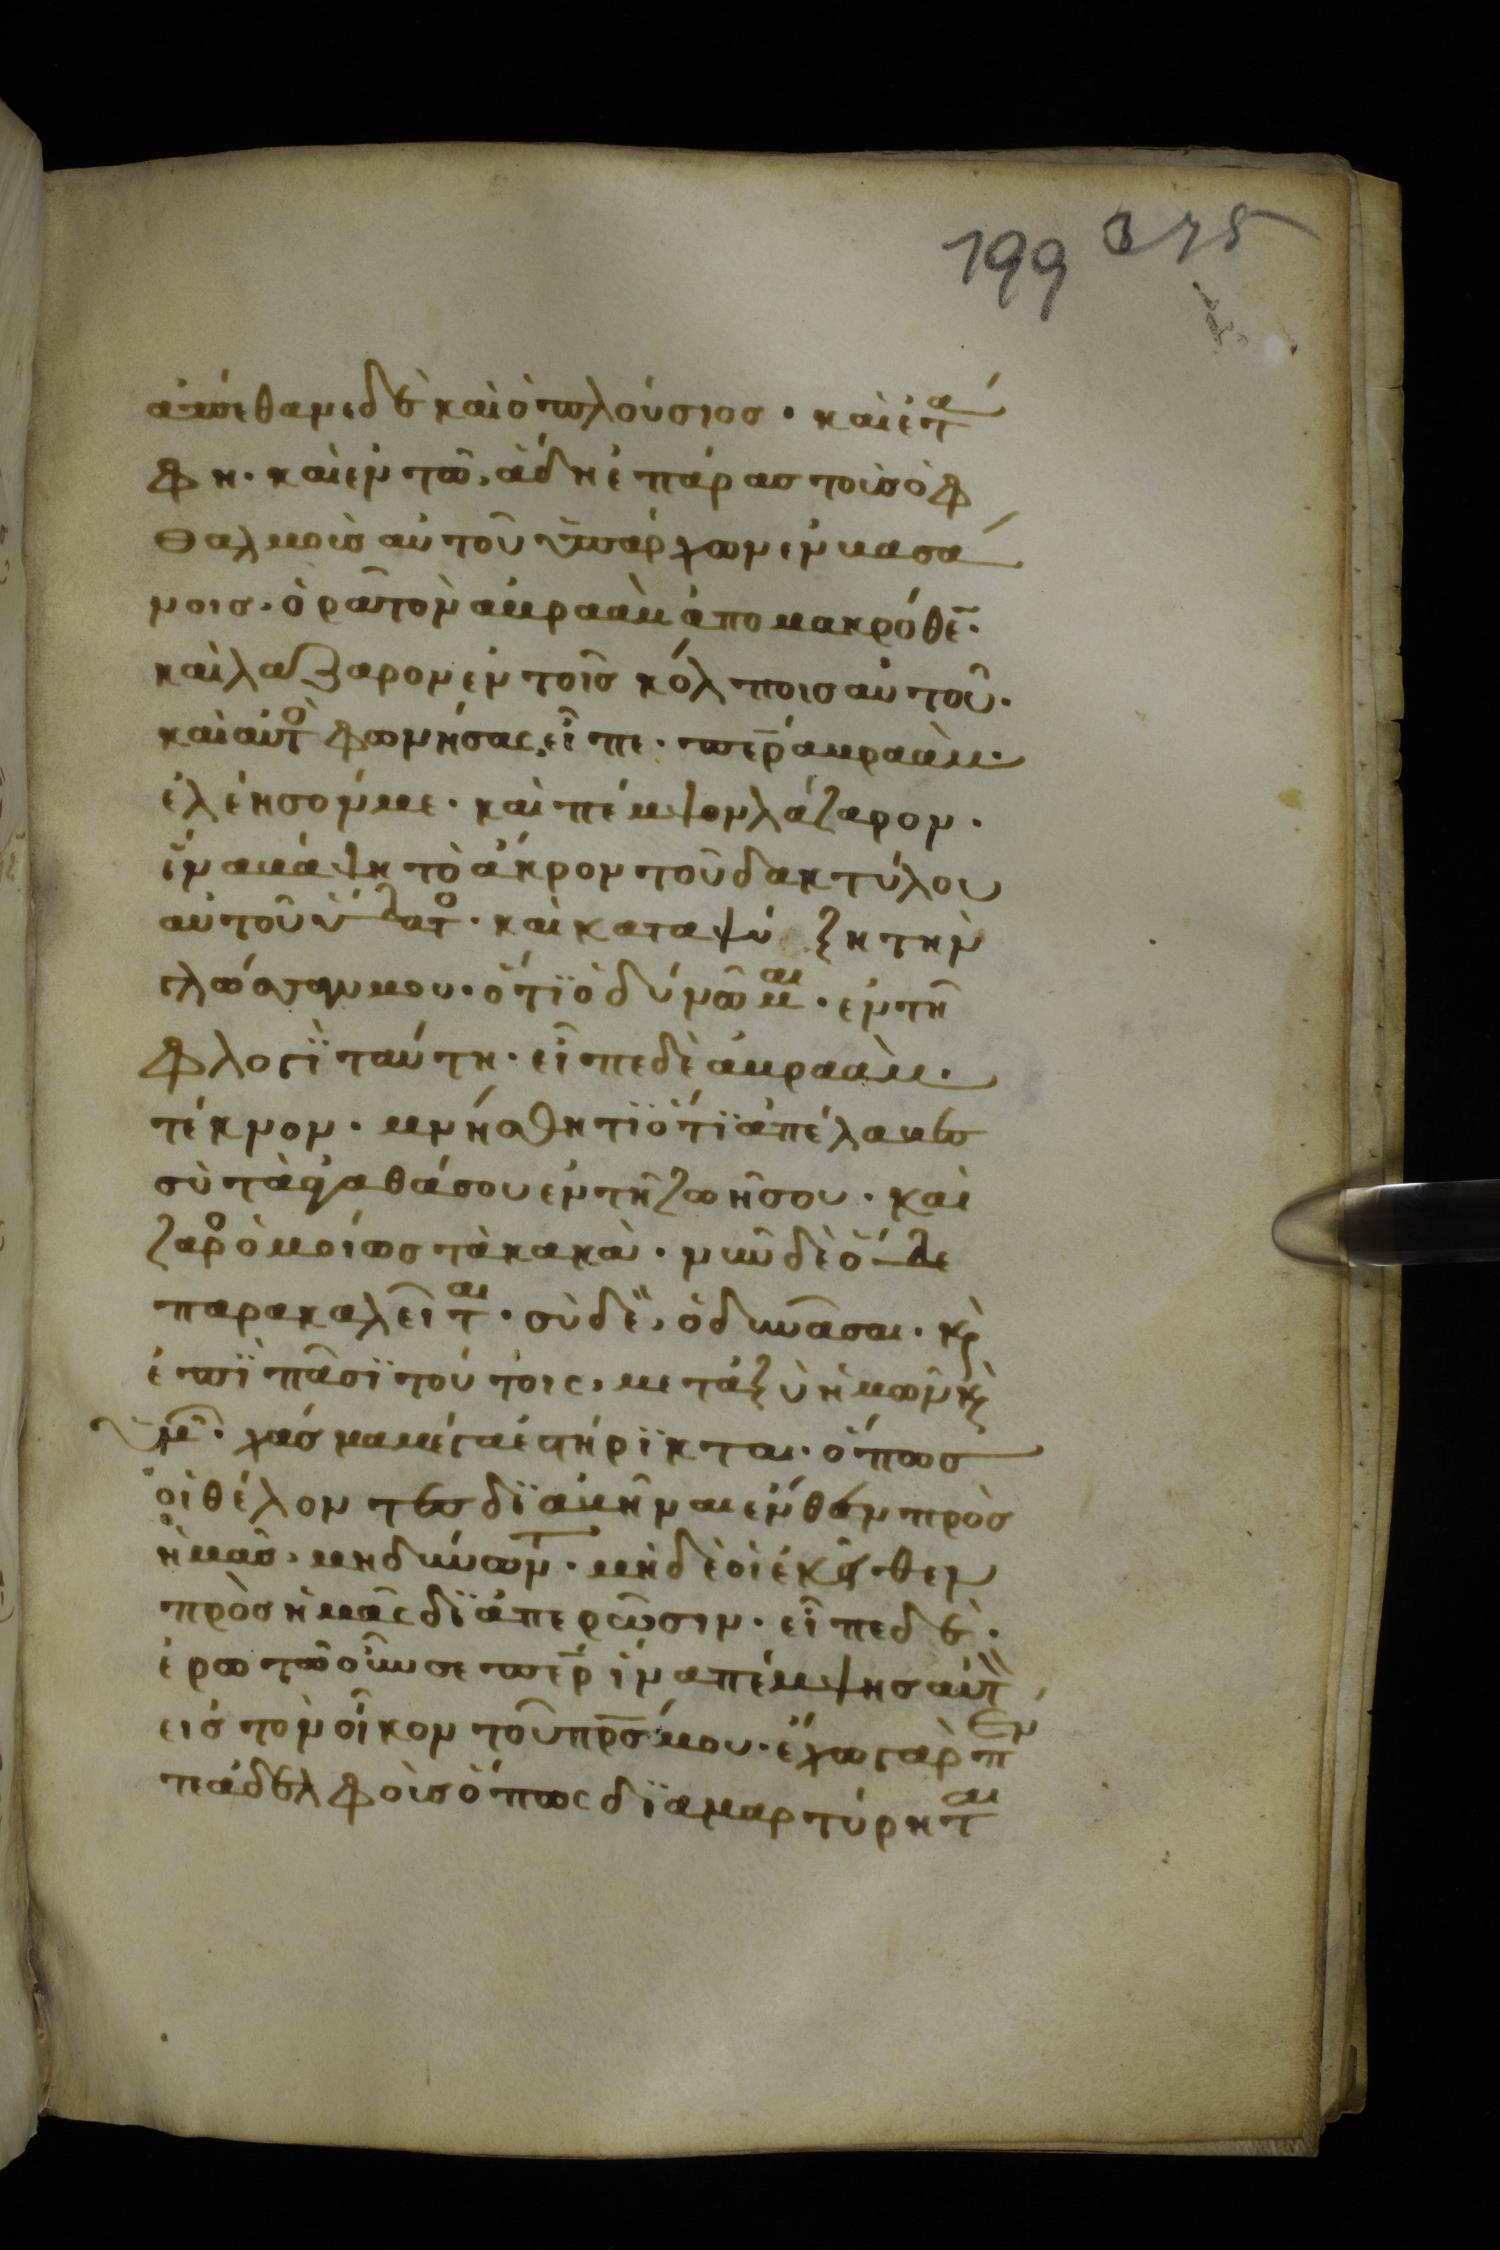 199 375
ἀπέθανε δὲ καὶ ὁ πλούσιος · καὶ ἐτά
φη · καὶ ἐν τῶ, ἅδη ἐπάρας τοὺς ὀφ
θαλμοὺς αὐτοῦ ὑπάρχων ἐν βασά
νοις, ὁρᾶ τὸν ἀβραὰμ ἀπομακρόθε̄ ·
καὶ λάζαρον ἐν τοῖς κόλποις αὐτοῦ ·
καὶ αὐτὸ φωνήσας, εἶπε · περ̄ ἀβραὰμ ·
ἐλέησόν με · καὶ πέμψον λάζαρον ·
ἵνα βάψη τὸ ἄκρον τοῦ δακτύλου
αὐτοῦ ὕδατο · καὶ καταψύξη τὴν
γλῶσσαν μου · ὅτϊ ὀδυνῶμαι · ἐν τῆ
φλογῒ ταύτη · εἶπε δὲ ἀβραὰμ ·
τέκνον · μνήσθητϊ ὅτϊ ἀπέλαβες
σὺ τὰ ἀγαθά σου ἐν τῆ ζωῆ σου · καὶ
ζαρο ὁμοίως τὰ κακὰ · νῦν δὲ ὅδε
παρακαλεῖται · σὺ δὲ, ὀδυνᾶσαι · κὲ
ἐπῒ πᾶσϊ τούτοις, μεταξὺ ἡμῶν κὲ
ὑμ̄ · χάσμα μέγα ἐστήρϊκται · ὅπως
οἱ θέλοντες δϊαβῆναι ἔνθεν πρὸς
ἡμᾶς, μὴ δύνωντ · μὴ δὲ οἱ ἐκεῖθεν
πρὸς ἡμᾶς δϊαπερῶσιν · εἶπε δὲ ·
ἐρωτῶ οὖν σε περ̄ ἵνα πέμψης αὐτὸν
εἰς τὸν οἶκον τοῦ πρ̄ς μου · ἔχω γὰρ πέν
τε ἀδελφοὺς ὅπως δϊαμαρτύρηται